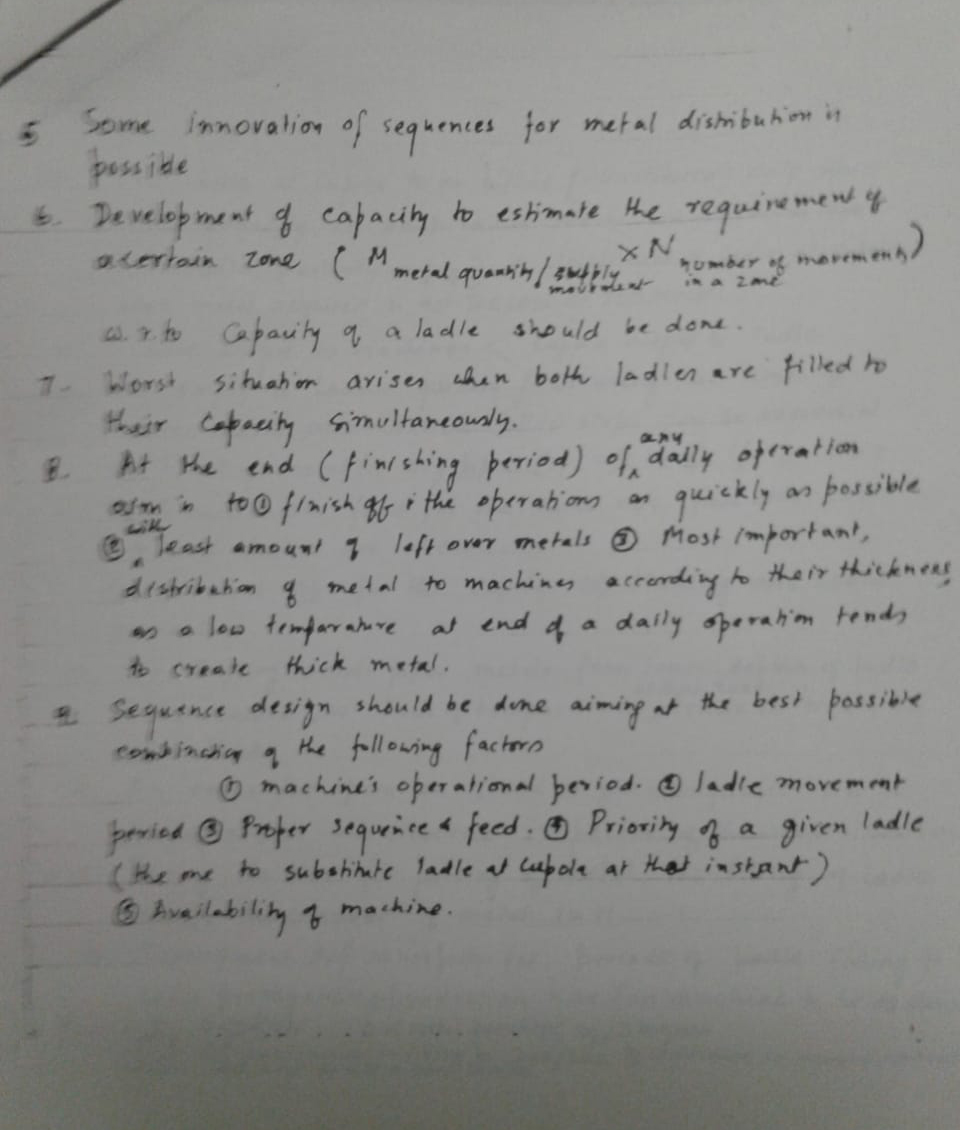 5 Some innovation of sequences for metal distribution is
possible
6. Development of capacity to estimate the requirement of
a certain zone ( M metal quantity/supply movement × N number of movement in a zone )
w.r.to Capacity of a ladle should be done.
7. Worst situation arises when both ladles are filled to
their Capacity simultaneously.
8. At the end (finishing period) of any daily operation
is to ① finish off the operations as quickly as possible
② with least amount of left over metals ③ Most important,
distribution of metal to machines according to their thickness
as a low temparature at end of a daily operation tends
to create thick metal.
9 Sequence design should be done aiming at the best possible
combination of the following factors
① machine's operational period. ② ladle movement
period ③ Proper sequence & feed. ④ Priority of a given ladle
(the one to substitute ladle at Cupola at that instant)
⑤ Availability of machine.